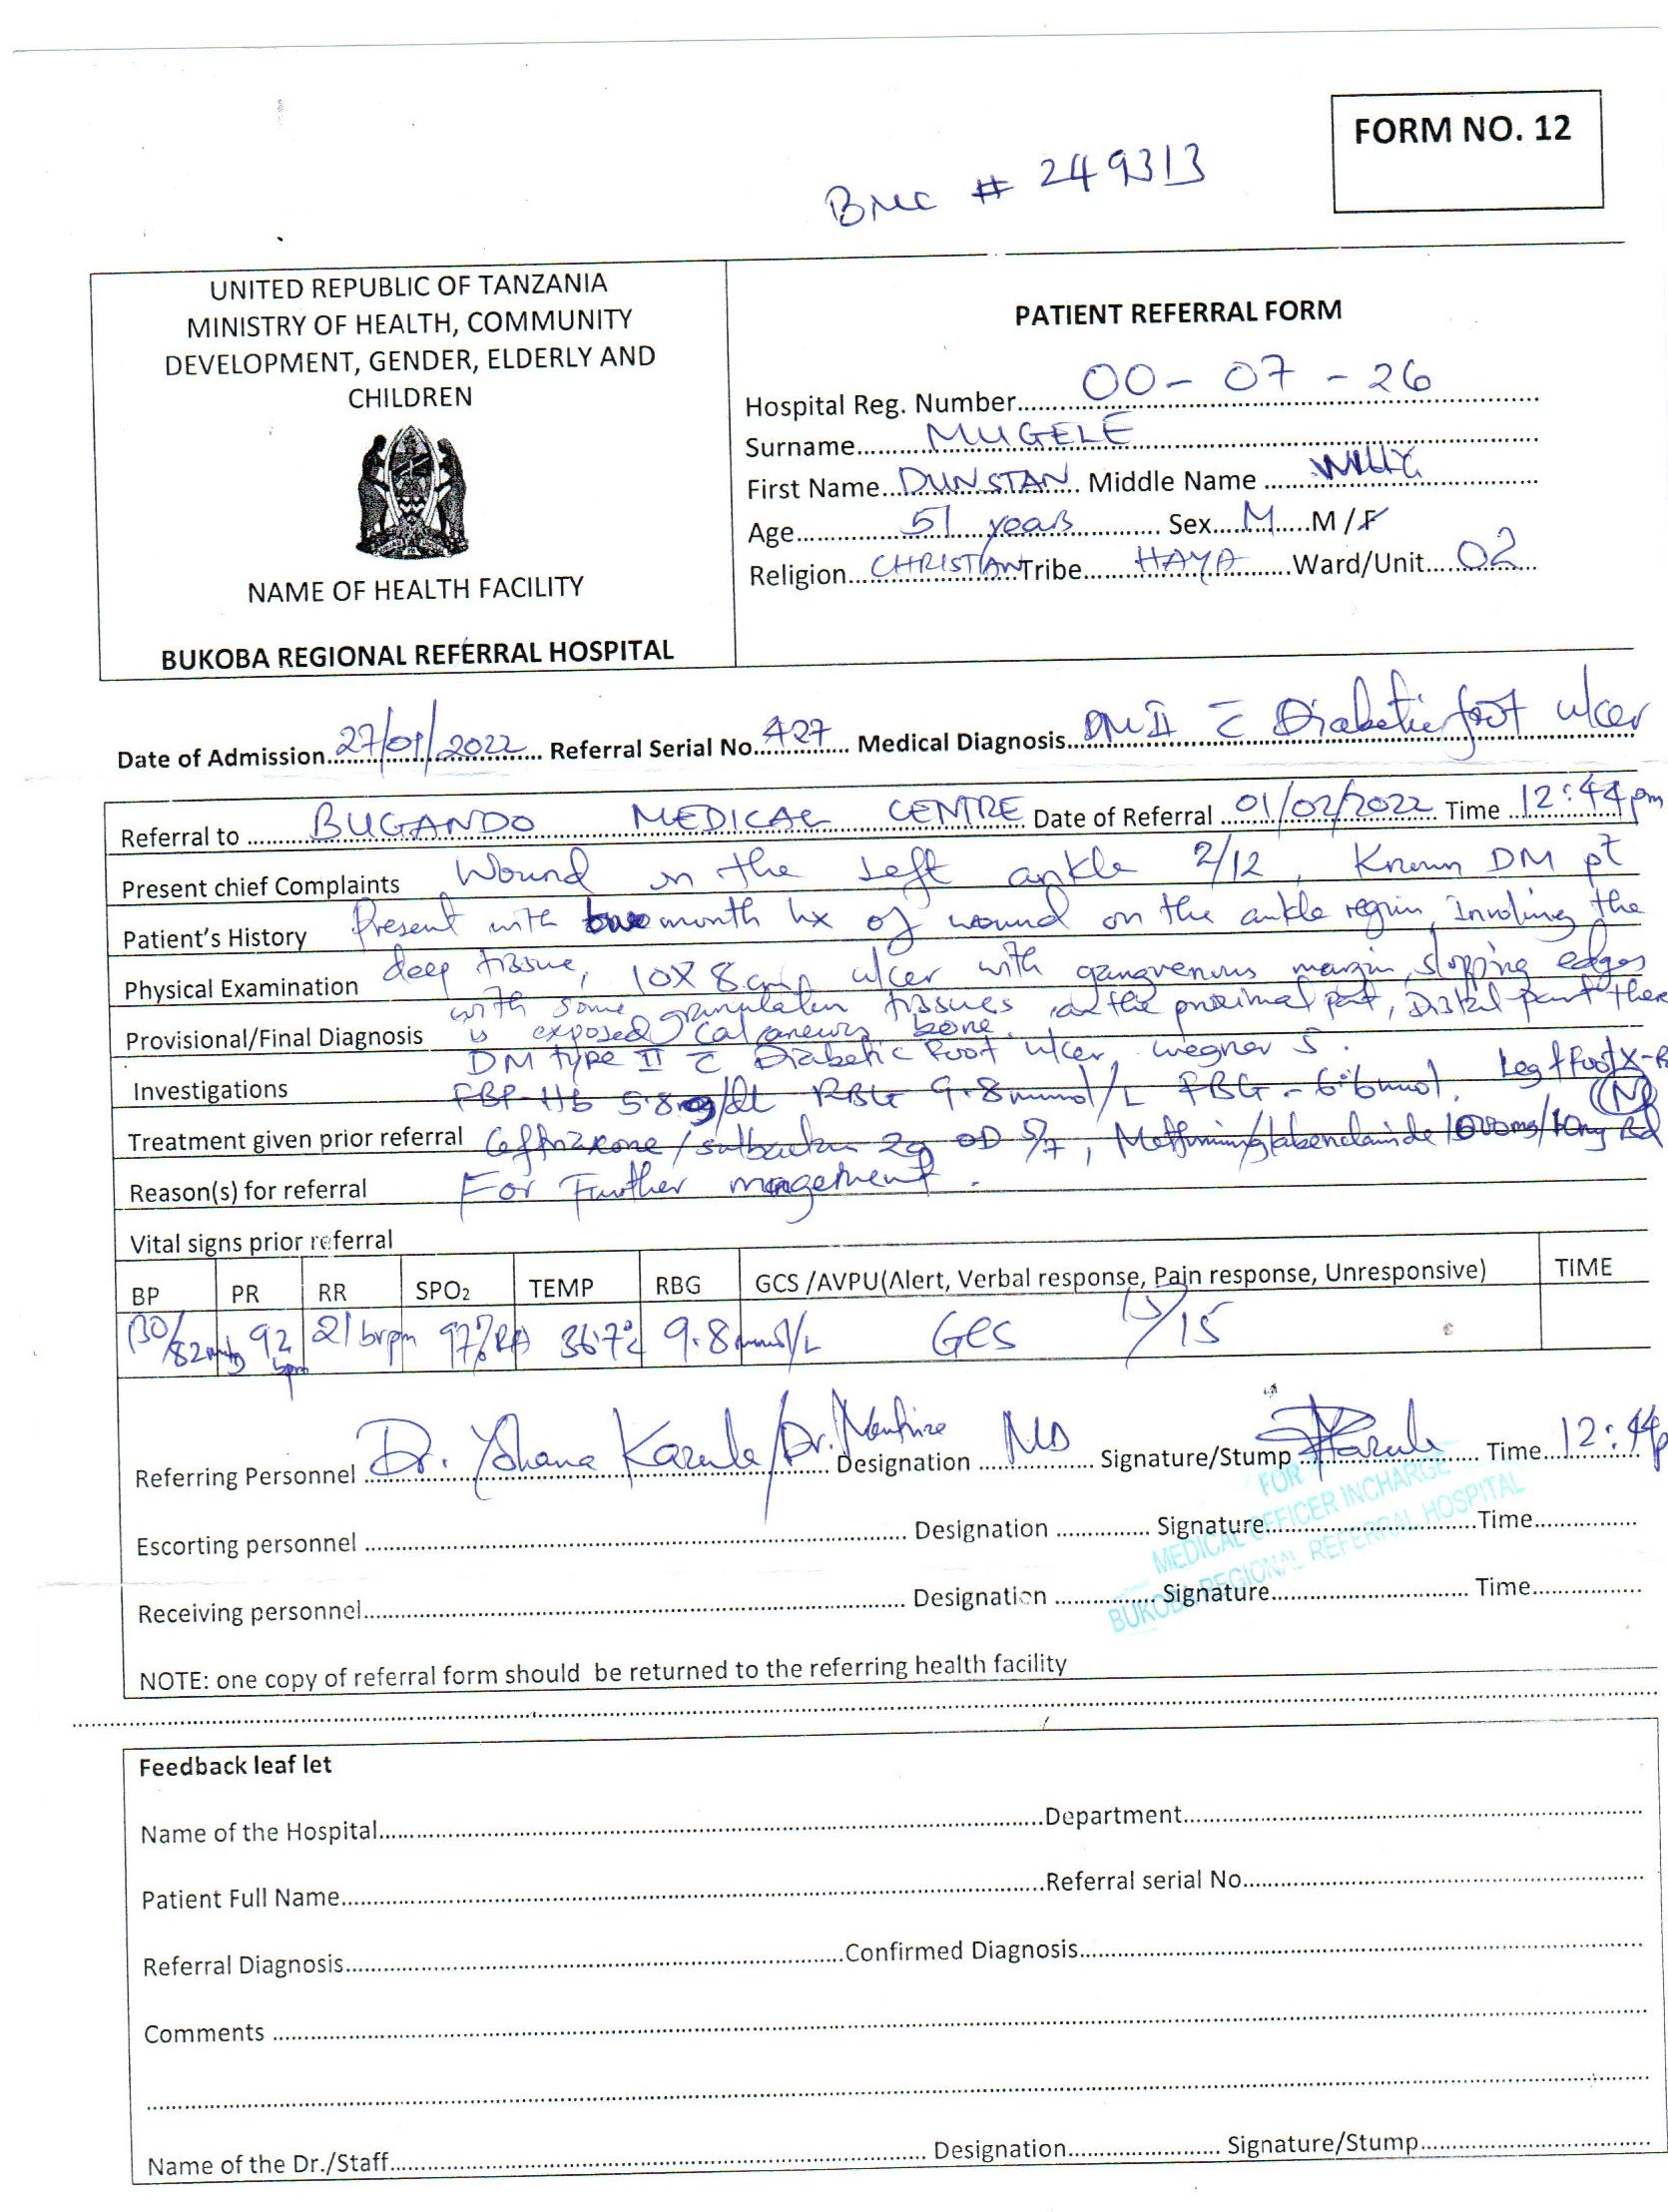 FORM NO. 12
BMC # 249313
UNITED REPUBLIC OF TANZANIA
MINISTRY OF HEALTH, COMMUNITY
DEVELOPMENT, GENDER, ELDERLY AND
CHILDREN
NAME OF HEALTH FACILITY
BUKOBA REGIONAL REFERRAL HOSPITAL
PATIENT REFERRAL FORM
Hospital Reg. Number 00-07-26
Surname MUGELE
First Name DUNSTAN Middle Name WILLY
Age 51 years Sex M M/F
Religion CHRISTIAN Tribe HAYA Ward/Unit 02
Date of Admission 27/01/2022 Referral Serial No. 427 Medical Diagnosis DM II c̄ Diabetic foot ulcer
Referral to BUGANDO MEDICAL CENTRE Date of Referral 01/02/2022 Time 12:44pm
Present chief Complaints Wound on the left ankle 2/12, Known DM pt
Patient's History Present with two month hx of wound on the ankle region, Involing the
Physical Examination deep tissue, 10X8cm ulcer with gangrenous margin, slopping edges
with some granulation tissues at the proximal part, Distal part there
Provisional/Final Diagnosis is exposed calcaneus bone.
DM type II c̄ Diabetic Foot ulcer, wegner 5.
Investigations FBP-Hb 5.8g/dl RBG 9.8mmol/L FBG - 6.6mmol. Leg & Foot X-R
Treatment given prior referral Ceftriaxone/sulbactam 2g OD 5/7, Metformin/glabenclamide 1000mg/10mg Bd
Reason(s) for referral For Further mangement.
Vital signs prior referral
BP PR RR SPO2 TEMP RBG GCS /AVPU(Alert, Verbal response, Pain response, Unresponsive) TIME
130/82mmHg 92bpm 21brpm 97%RA 36.7°c 9.8mmol/L GCS 15/15
Referring Personnel Dr. Yohana /Dr. Designation MD Signature/Stump Time 12:44p
FOR
MEDICAL OFFICER INCHARGE
BUKOBA REGIONAL REFERRAL HOSPITAL
Escorting personnel Designation Signature Time
Receiving personnel Designation Signature Time
NOTE: one copy of referral form should be returned to the referring health facility
Feedback leaf let
Name of the Hospital Department
Patient Full Name Referral serial No
Referral Diagnosis Confirmed Diagnosis
Comments
Name of the Dr./Staff Designation Signature/Stump